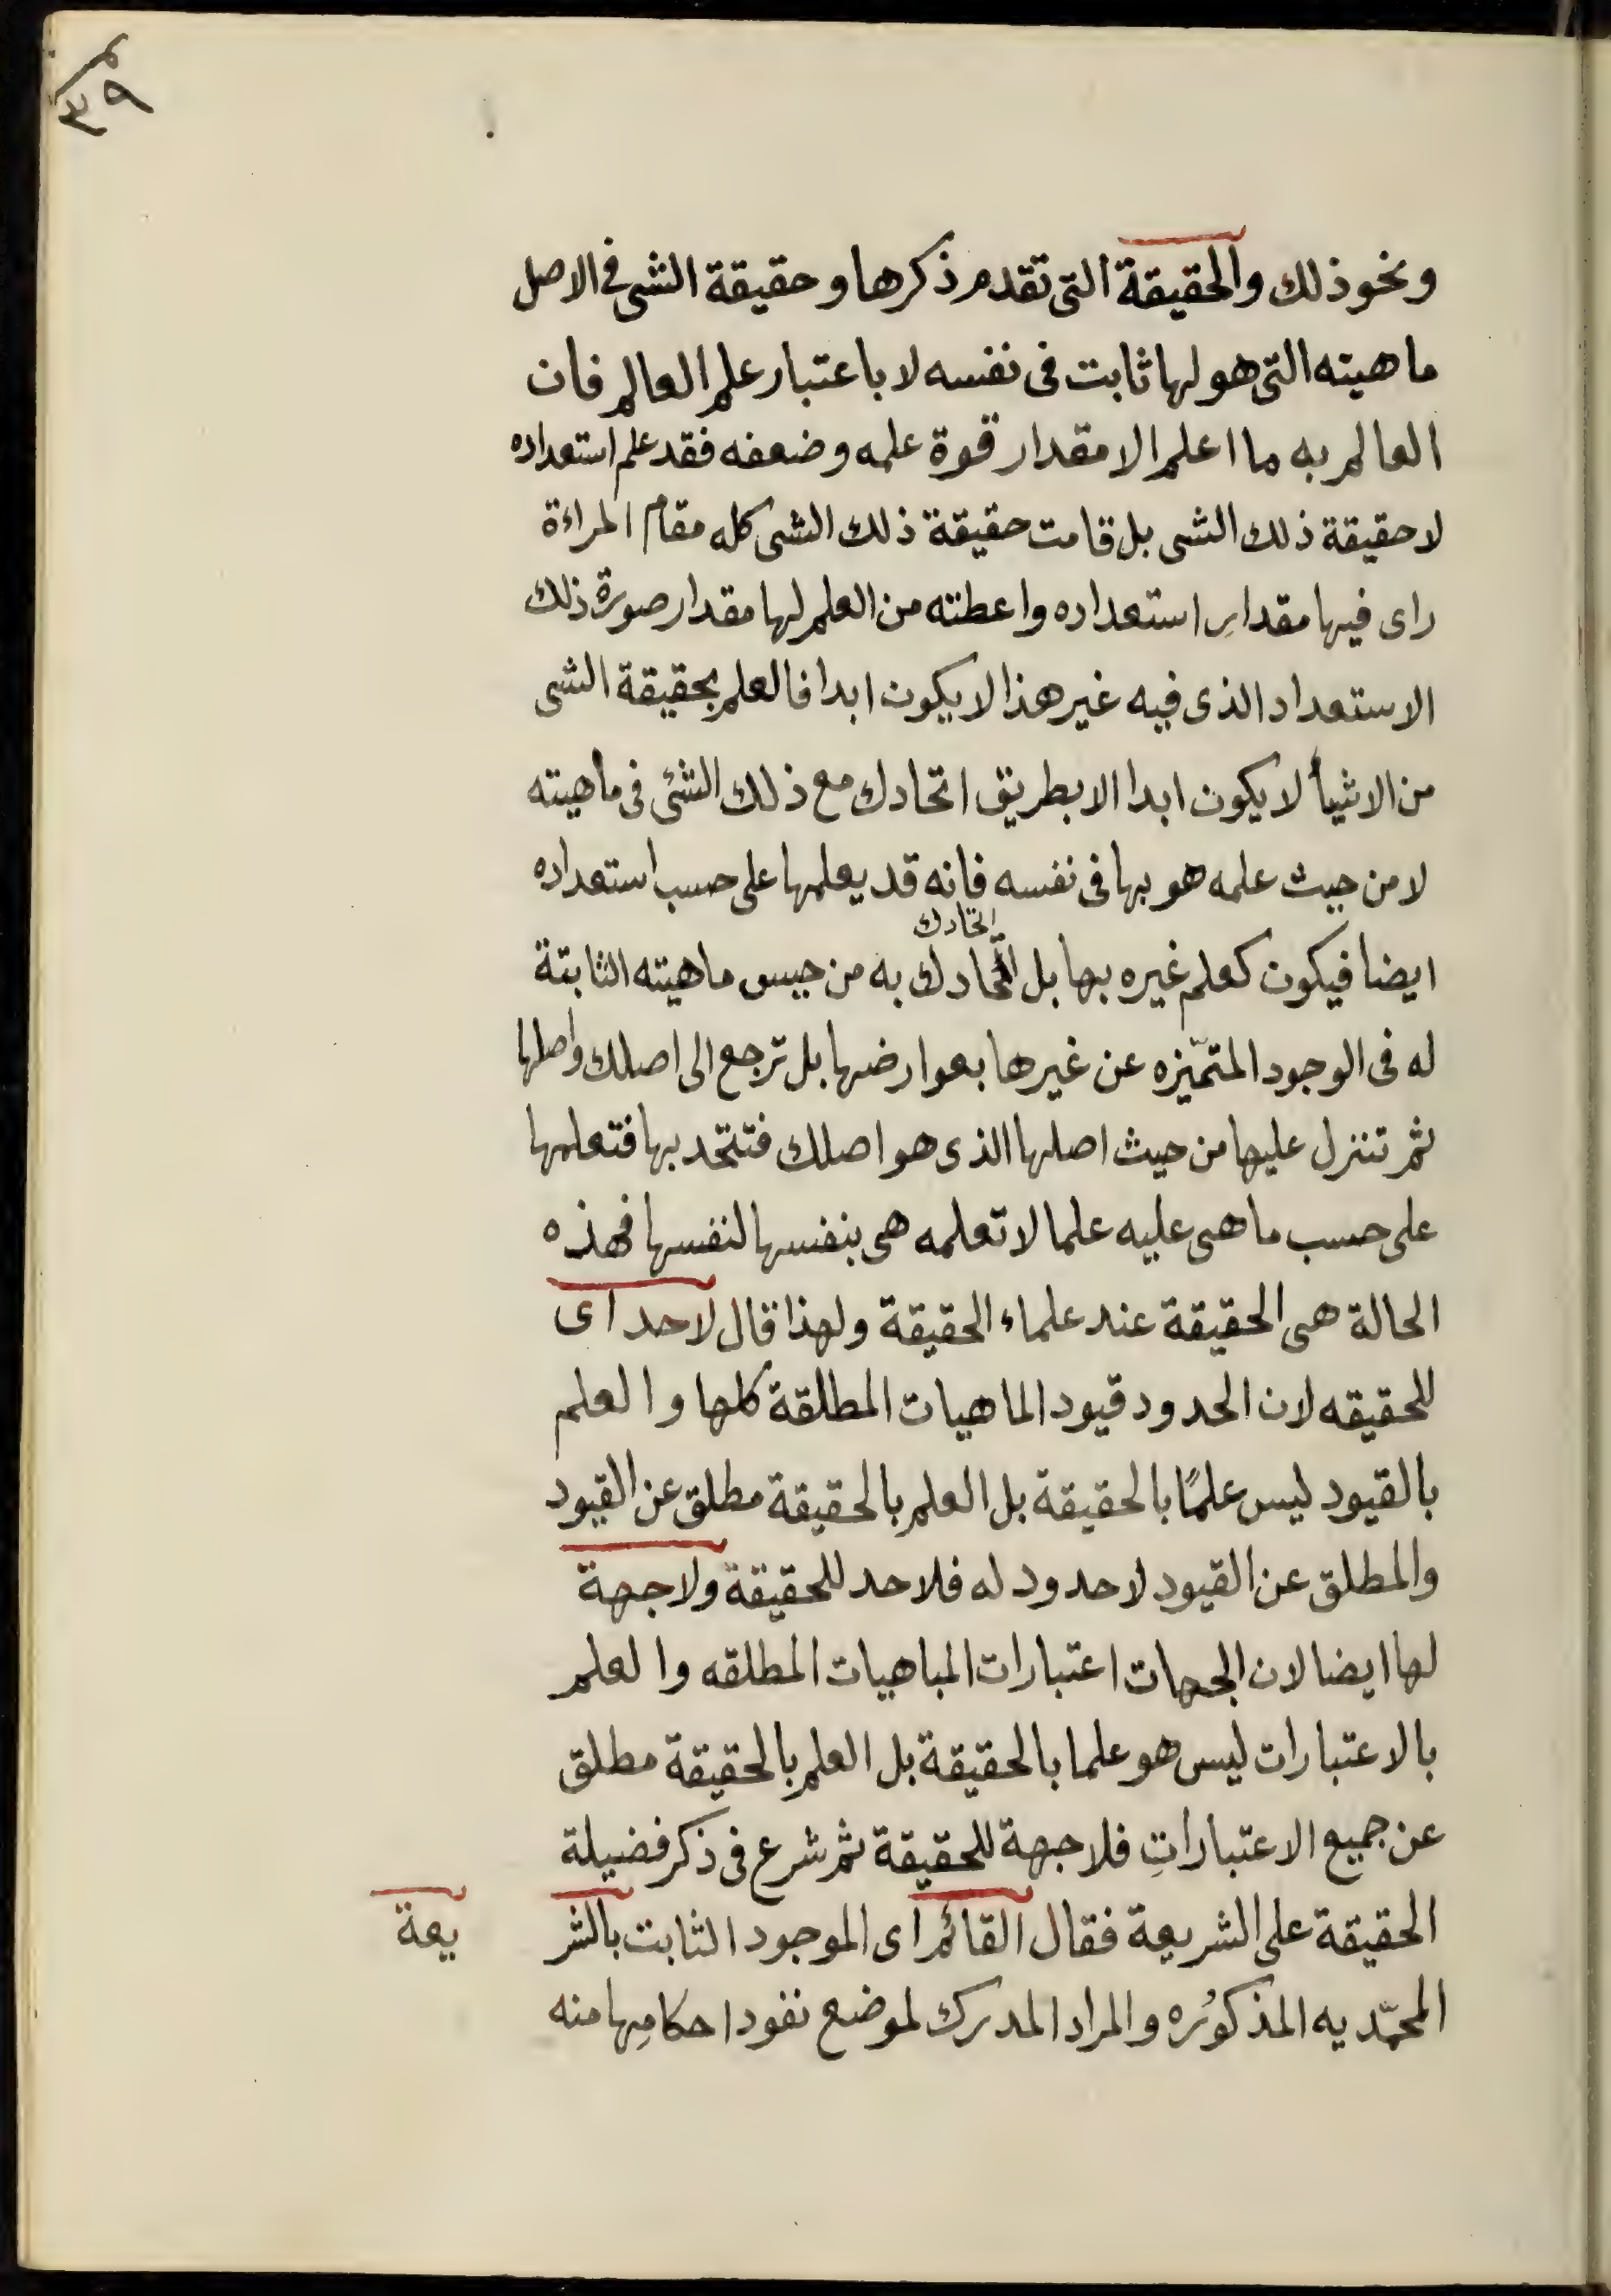 ٣٩
ونحو ذلك والحقيقة التى تقدم ذكرها وحقيقة الشى فى الاصل
ماهيته التى هو لها ثابت فى نفسه لا باعتبار علم العالم فان
العالم به ما اعلم الا مقدار قوة علمه وضعفه فقد علم استعداده
لا حقيقة ذلك الشى بل قامت حقيقة ذلك الشى كله مقام المراءة
راى فيها مقدار استعداده واعطته من العلم لها مقدار صورة ذلك
الاستعداد الذى فيه غير هذا لا يكون ابدا فالعلم بحقيقة الشى
من الاشيأ لا يكون ابدا الا بطريق اتحادك مع ذلك الشئ فى ماهيته
لا من حيث علمه هو بها فى نفسه فانه قد يعلمها على حسب استعداده
اتحادك
ايضا فيكون كعلم غيره بها بل اتّحادك به من حيس ماهيته الثابتة
له فى الوجود المتميّزه عن غيرها بعوارضها بل ترجع الى اصلك واصلها
ثم تنزل عليها من حيث اصلها الذى هو اصلك فتتحد بها فتعلمها
على حسب ما هى عليه علما لا تعلمه هى بنفسها لنفسها فهذه
الحالة هى الحقيقة عند علماء الحقيقة ولهذا قال لاحد اى
للحقيقه لان الحدود قيود الماهيات المطلقة كلها والعلم
بالقيود ليس علمًا بالحقيقة بل العلم بالحقيقة مطلق عن القيود
والمطلق عن القيود لا حدود له فلا حد للحقيقة ولا جهة
لها ايضا لان الجهات اعتبارات المباهيات المطلقه والعلم
بالاعتبارات ليس هو علما بالحقيقة بل العلم بالحقيقة مطلق
عن جميع الاعتباراتِ فلا جهة للحقيقة ثم شرع فى ذكر فضيلة
الحقيقة على الشريعة فقال القائم اى الموجود الثابت بالشر يعة
المحمّديه المذكوُره والمراد المدرك لموضع نفود احكامِها منه